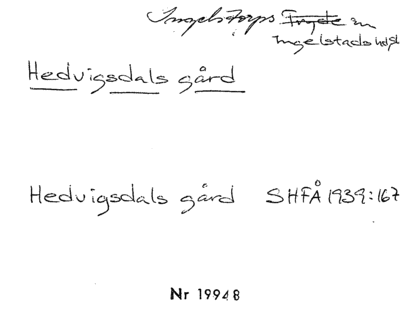 Ingelstorps sn
Ingelstads hd, Sk
Hedvigsdals gård
Hedvigsdals gård SHFÅ 1939:167
Nr 19948